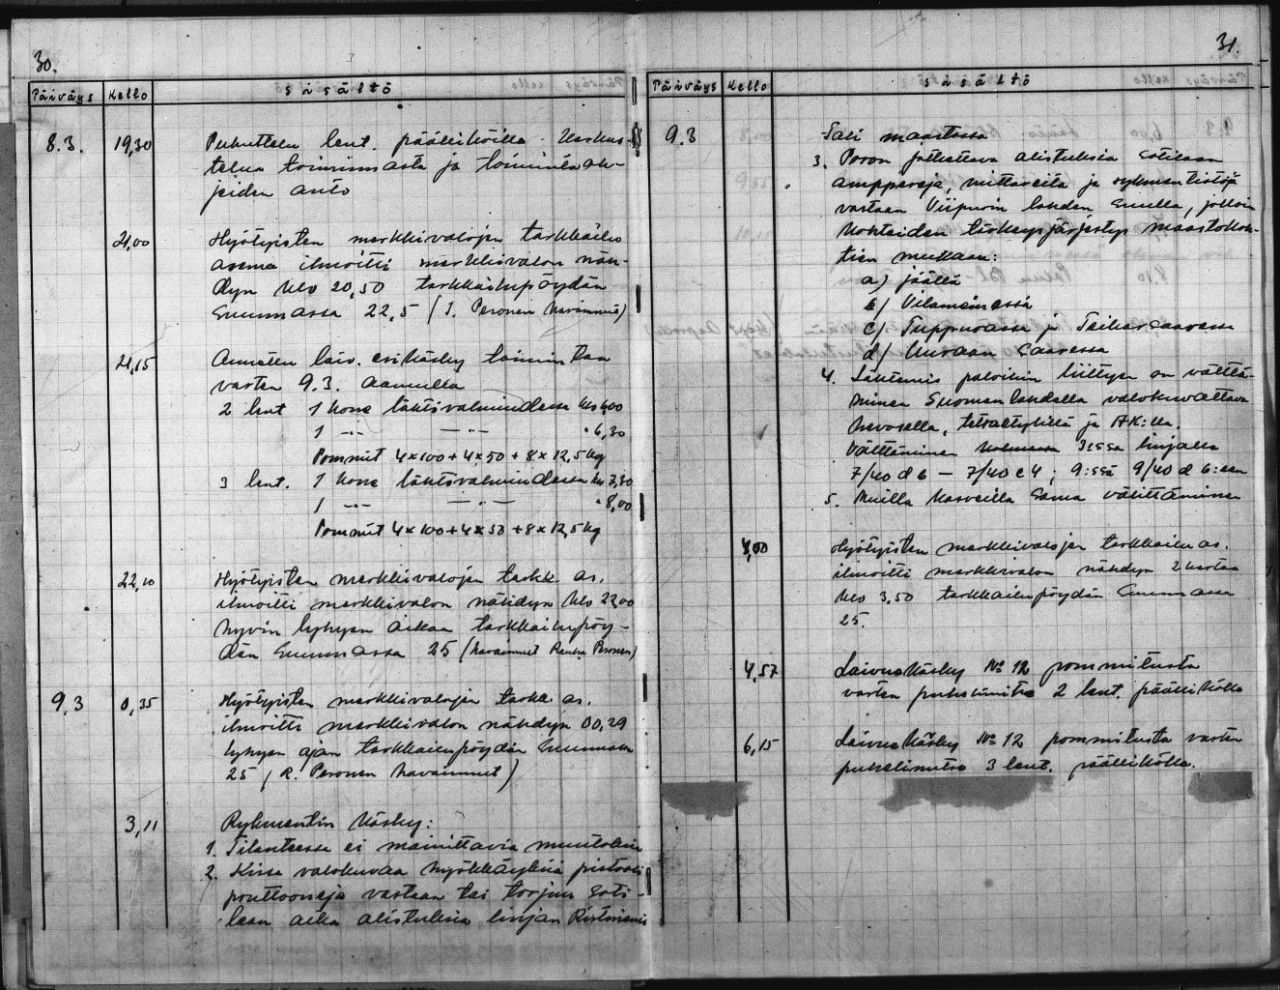 30.
Päiväys Kello sisältö
8.3. 19,30 Puhuttelu lent. päälliköille. Keskus-
telua toiminnasta ja toimintaoh-
jeiden anto
21,00 Hyötyisten merkkivalojen tarkkailu
asema ilmoitti merkkivalon näh-
dyn klo 20,50 tarkkailupöydän
Suunnassa 22,5 (I. Peronen havainnut)
21,15 Annettu laiv. esikäsky toimintaa
varten 9.3. aamulla
2 lent 1 kone lähtövalmiudessa klo 6,00
1 -"- -"- " 6,30
Pommit 4x100+4x50+8x12,5kg
3 lent. 1 kone lähtövalmiudessa klo 7,30
1 -"- " 8,00
Pommit 4x100+4x50+8x12,5kg
22,10 Hyötyisten merkkivalojen tarkk. as.
ilmoitti merkkivalon nähdyn klo 22,00
hyvin lyhyen aikaa tarkkailupöy-
dän Suunnassa 25 (havainnut Peronen)
9,3 0,35 Hyötyisten merkkivalojen tarkk. as.
ilmoitti merkkivalon nähdyn 00,29
lyhyen ajan tarkkailupöydän Suunnassa
25 (R. Peronen havainnut)
3,11 Rykmentin käsky:
1. Tilanteessa ei mainittavia muutoksia
2. valokuvaa hyökkäyksiä
ponttooneja vastaan tai
aika alistuksia linjan Ristiniemi
31.
Päiväys Kello sisältö
9.3 Sali maastossa
3. Poron jatkettava alistuksia
ja
vastaan Viipurin lahden Suulla, jolloin
kohteiden tärkeysjärjestys maastokoh-
tien mukaan:
a) jäällä
b) Vilaniemessä
c) Tuppurassa ja Teikarsaaressa
d) Uuraan Saaressa
4. liittyen on välttä-
minen Suomenlahdella
ja AK:lla.
Välttäminen kolmessa 3:ssa linjalla
7/40 d 6 — 7/40 e 4; 9:ssä 9/40 d 6:een
5. Muilla Sama välittäminen
4,00 Hyötyisten merkkivalojen tarkkailu as.
ilmoitti merkkivalon nähdyn 2 kertaa
klo 3,50 tarkkailupöydän Suunnassa
25.
4,57 Laivuekäsky No 12 pommitusta
varten puhelimitse 2 lent. päällikölle
6,15 Laivuekäsky No 12 pommitusta varten
puhelimitse 3 lent. päällikölle.